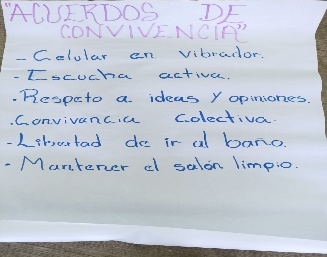 "ACUERDOS DE
CONVIVENCIA"
- Celular en vibrador.
- Escucha activa.
. Respeto a ideas y opiniones.
. Convivancia Colectiva.
- Libertad de ir al baño.
- Mantener el salón limpio.